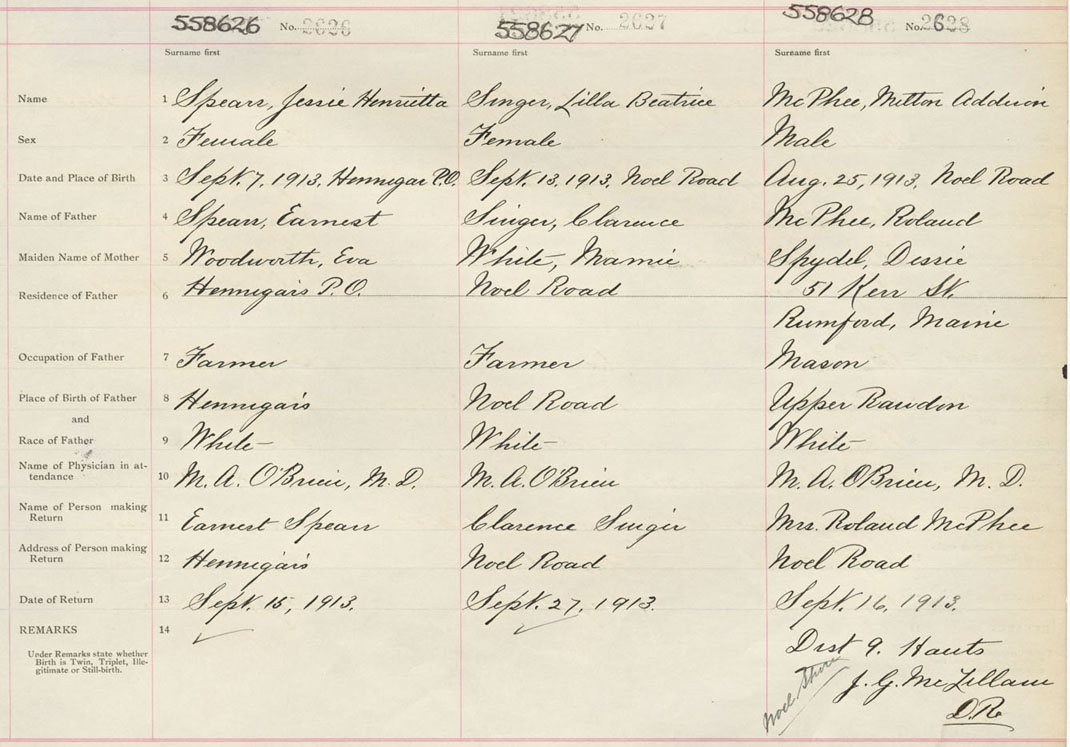 558626 No. 2626 558627 No. 2627 558628 No. 2628
Surname first Surname first Surname first
Name 1 Spearr, Jessie Henrietta Singer, Lilla Beatrice McPhee, Milton
Sex 2 Female Female Male
Date and Place of Birth 3 Sept. 7, 1913, Hennigar P.O. Sept. 13, 1913, Noel Road Aug. 25, 1913, Noel Road
Name of Father 4 Spearr, Earnest Singer, Clarence McPhee, Roland
Maiden Name of Mother 5 Woodworth, Eva White, Mamie Spydel, Dessie
Residence of Father 6 Hennigar's P.O. Noel Road 51 Kerr St.
Rumford, Maine
Occupation of Father 7 Farmer Farmer Mason
Place of Birth of Father 8 Hennigar's Noel Road Upper Rawdon
and
Race of Father 9 White White White
Name of Physician in at-
tendance 10 M. A. O'Brien, M.D. M. A. O'Brien M. A. O'Brien, M.D.
Name of Person making
Return 11 Earnest Spearr Clarence Singer Mrs. Roland McPhee
Address of Person making
Return 12 Hennigar's Noel Road Noel Road
Date of Return 13 Sept. 15, 1913. Sept. 27, 1913. Sept. 16, 1913.
REMARKS 14
Under Remarks state whether
Birth is Twin, Triplet, Ille-
gitimate or Still-birth.
Dist 9. Hants
Noel Shore
J. G. McLellan
D.R.